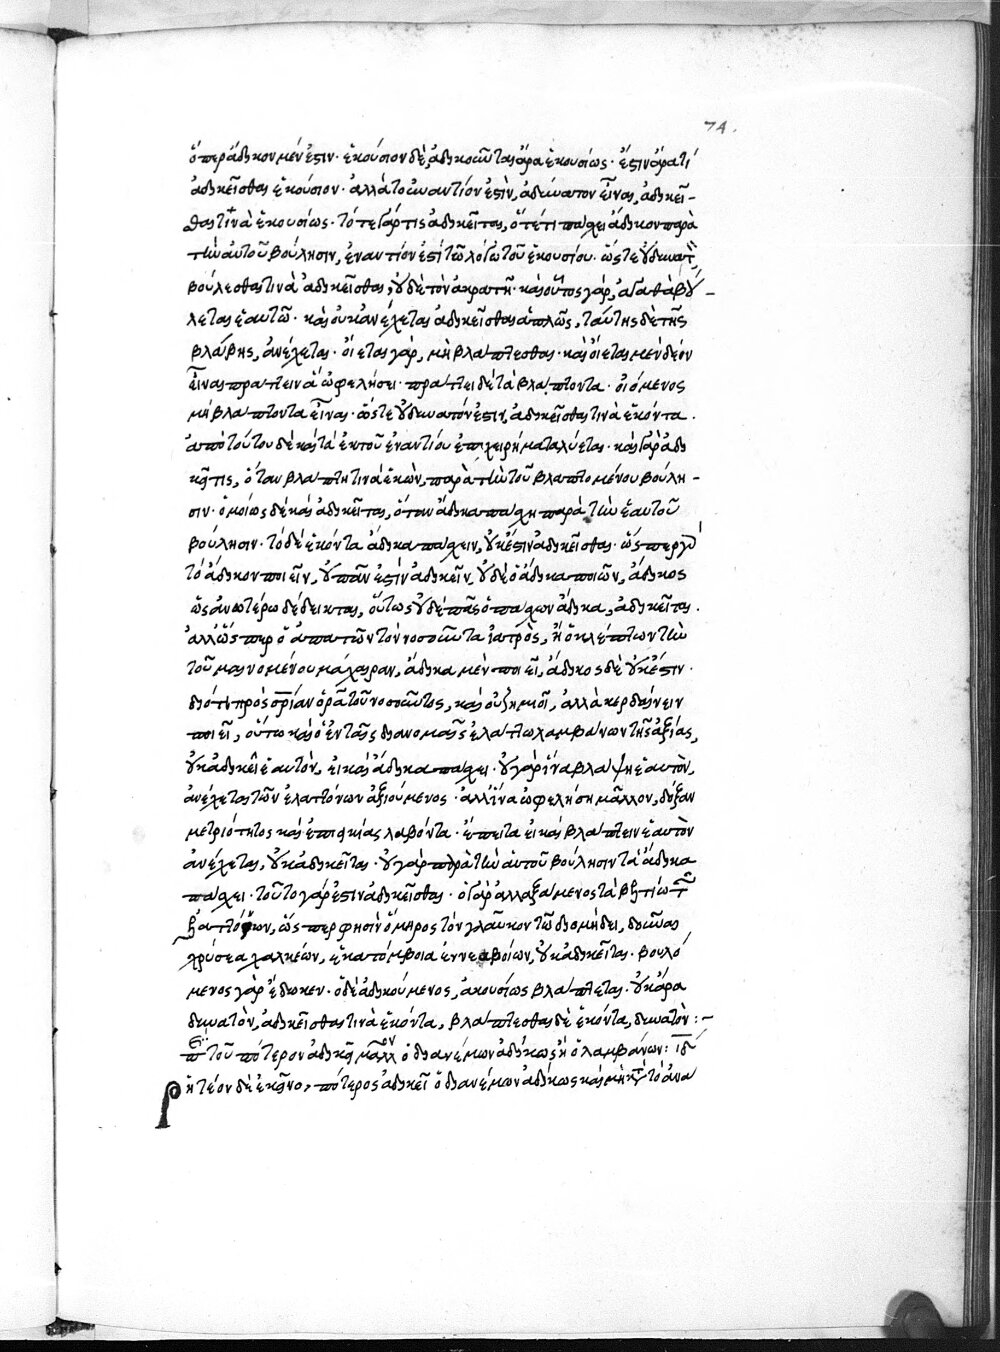 74.
ὅπερ ἄδικον μέν ἐστιν· ἑκούσιον δὲ, ἀδικοῦνται ἄρα ἑκουσίως· ἔστιν ἄρα τί
ἀδικεῖσθαι ἑκούσιον· ἀλλὰ τὸ ἐναντίον ἐστὶν, ἀδύνατον εἶναι, ἀδικεῖ-
σθαι τινὰ ἑκουσίως· τότε γάρ τις ἀδικεῖται, ὅτέ τι πάσχει ἄδικον παρὰ
τὴν αὑτοῦ βούλησιν, ἐναντίον ἐστὶ τῶ λόγω τοῦ ἑκουσίου· ὥστε οὐ δυνατὸν
βούλεσθαι τινὰ ἀδικεῖσθαι, οὐδὲ τὸν ἀκρατῆ· καὶ οὗτος γάρ, ἀγαθὰ βού-
λεται ἑαυτῶ· καὶ οὐκ ἀνέχεται ἀδικεῖσθαι ἁπλῶς, ταύτης δὲ τῆς
βλάβης, ἀνέχεται· οἴεται γάρ, μὴ βλάπτεσθαι· καὶ οἴεται μὲν δέον
εἶναι πράττειν ἃ ὠφελήσει· πράττει δὲ τὰ βλάπτοντα· οἰόμενος
μὴ βλάπτοντα εἶναι· ὥστε οὐ δυνατόν ἐστιν, ἀδικεῖσθαι τινὰ ἑκόντα.
ἀπὸ τούτου δὲ καὶ τὰ ἐκ τοῦ ἐναντίου ἐπιχειρήματα λύεται· καὶ γὰρ ἀδι
κεῖ τις, ὅταν βλάπτη τινὰ ἑκὼν, παρὰ τὴν τοῦ βλαπτομένου βούλη-
σιν· ὁμοίως δὲ καὶ ἀδικεῖται, ὅταν ἄδικα πάσχη παρὰ τὴν ἑαυτοῦ
βούλησιν· τὸ δὲ ἑκόντα ἄδικα πάσχειν, οὐκ ἔστιν ἀδικεῖσθαι· ὥσπερ γὰρ
τὸ ἄδικον ποιεῖν, οὐ πᾶν ἐστὶν ἀδικεῖν, οὐδὲ ὁ ἄδικα ποιῶν, ἄδικος
ὡς ἀνωτέρω δέδεικται, οὕτως οὐδὲ πᾶς ὁ πάσχων ἄδικα, ἀδικεῖται.
ἀλλ' ὥσπερ ὁ ἀπατῶν τὸν νοσοῦντα ἰατρὸς, ἢ ὁ κλέπτων τὴν
τοῦ μαινομένου μάχαιραν, ἄδικα μὲν ποιεῖ, ἄδικος δὲ οὐκ ἔστιν·
διότι πρὸς σρίαν ὁρᾶ τοῦ νοσοῦντος, καὶ οὐ ζημιοῖ, ἀλλὰ κερδαίνειν
ποιεῖ, οὕτω καὶ ὁ ἐν ταῖς διανομαῖς ἐλάττω λαμβάνων τῆς ἀξίας,
οὐκ ἀδικεῖ ἑαυτὸν, εἰ καὶ ἄδικα πάσχει· οὐ γὰρ ἵνα βλάψη ἑαυτὸν,
ἀνέχεται τῶν ἐλαττόνων ἀξιούμενος· ἀλλ' ἵνα ὠφελήση μᾶλλον, δόξαν
μετριότητος καὶ ἐπιεικείας λαβόντα· ἔπειτα εἰ καὶ βλάπτειν ἑαυτὸν
ἀνέχεται, οὐκ ἀδικεῖται· οὐ γὰρ παρὰ τὴν αὑτοῦ βούλησιν τὰ ἄδικα
πάσχει· τοῦτο γάρ ἐστιν ἀδικεῖσθαι· ὁ γὰρ ἀλλαξάμενος τὰ βελτίω τῶν
ἐλαττόνων, ὥσπερ φησὶν ὅμηρος τὸν γλαῦκον τῶ διομήδει, δοῦναι
χρύσεα χαλκείων, ἑκατόμβοια ἐννεαβοίων, οὐκ ἀδικεῖται· βουλό
μενος γὰρ ἔδωκεν· ὁ δὲ ἀδικούμενος, ἀκουσίως βλάπτεται· οὐκ ἄρα
δυνατὸν, ἀδικεῖσθαι τινὰ ἑκόντα, βλάπτεσθαι δὲ ἑκόντα, δυνατὸν :-
π τοῦ πότερον ἀδικεῖ μᾶλλον ὁ διανέμων ἀδίκως ἢ ὁ λαμβάνων: ιδ
ῥητέον δὲ ἐκεῖνο, πότερος ἀδικεῖ ὁ διανέμων ἀδίκως καὶ μὴ κατὰ τὸ ἀνα